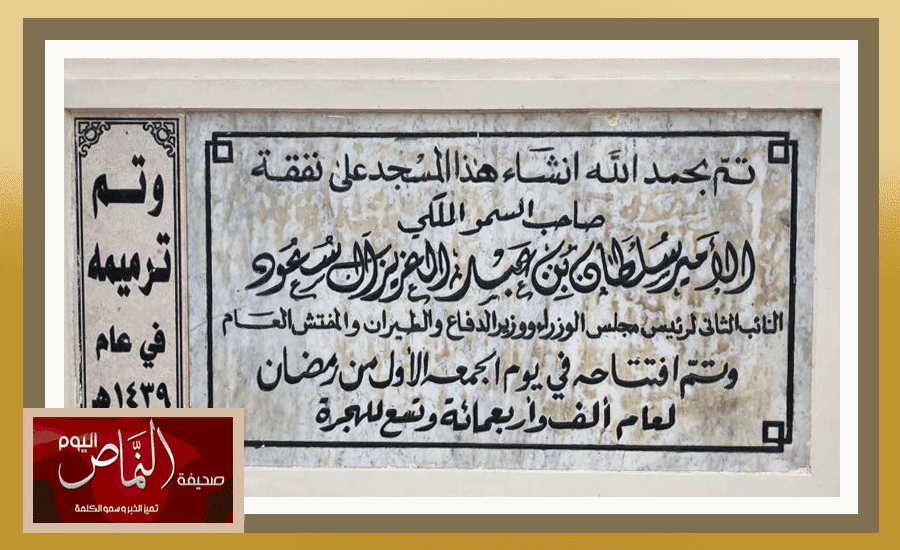 تم بحمد الله انشاء هذا المسجد على نفقة
صاحب السمو الملكي
الأمير سلطان بن عبد العزيز آل سعود
النائب الثاني لرئيس مجلس الوزراء ووزير الدفاع والطيران والمفتش العام
وتم افتتاحه في يوم الجمعه الأول من رمضان
لعام ألف وأربعمائة وتسع للهجرة
وتم
ترميمه
في عام
١٤٣٩هـ
صحيفة النماص اليوم
تميز الخبر وسمو الكلمة